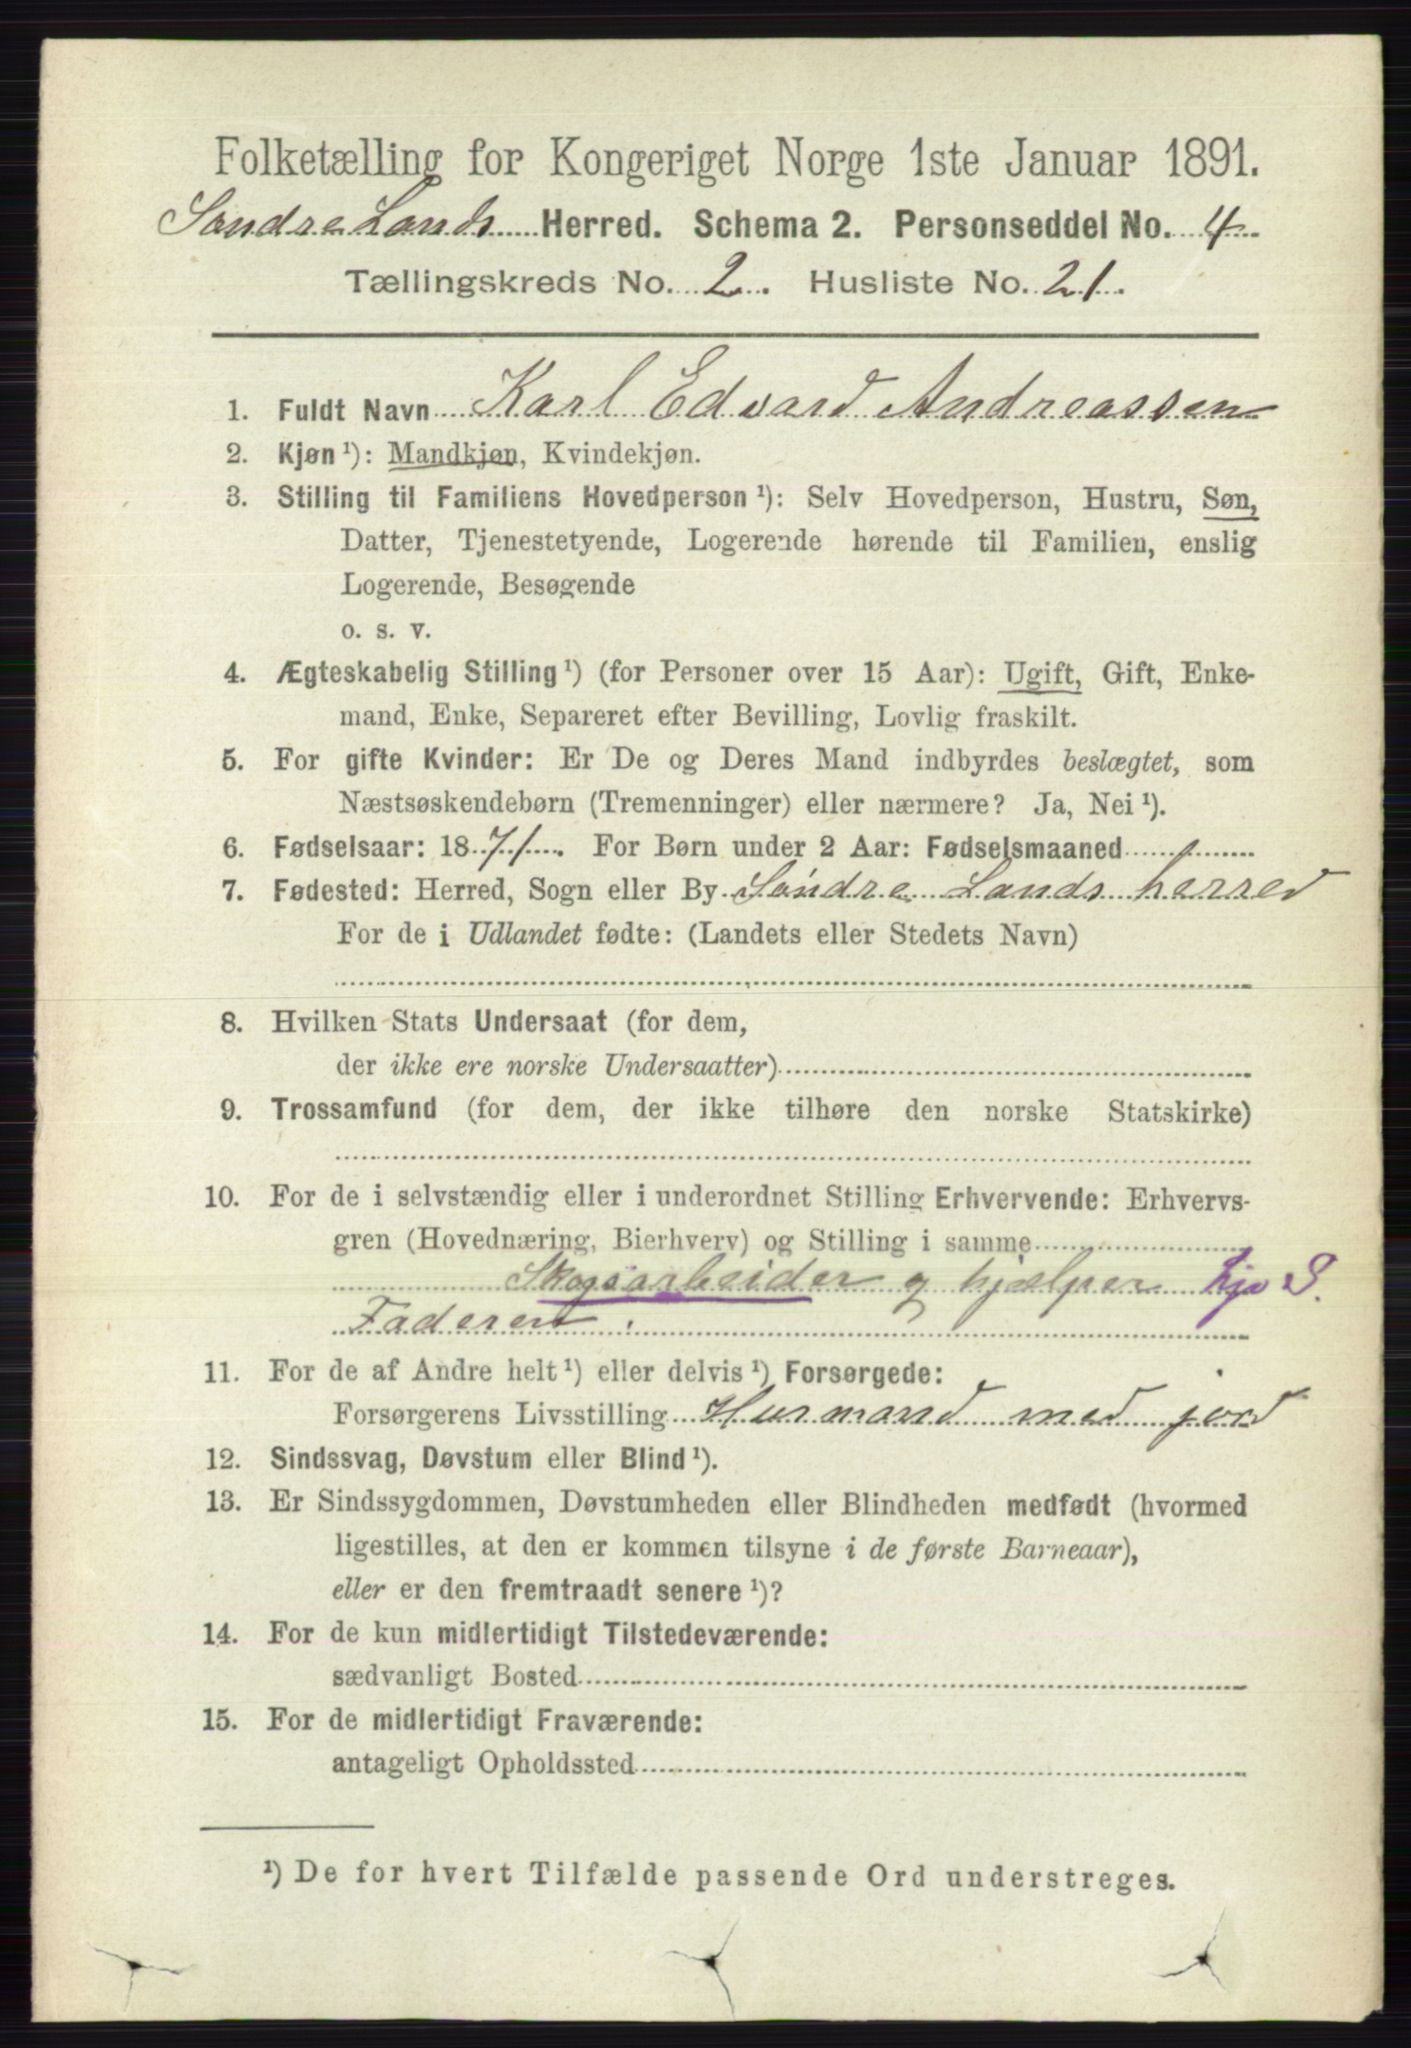 Folketælling for Kongeriget Norge 1ste Januar 1891.
Søndre Lands Herred. Schema 2. Personseddel No. 4
Tællingskreds No. 2. Husliste No. 21.
1. Fuldt Navn Karl Edvard Andreassen
2. Kjøn ¹): Mandkjøn, Kvindekjøn.
3. Stilling til Familiens Hovedperson ¹): Selv Hovedperson, Hustru, Søn,
Datter, Tjenestetyende, Logerende hørende til Familien, enslig
Logerende, Besøgende
o. s. v.
4. Ægteskabelig Stilling ¹) (for Personer over 15 Aar): Ugift, Gift, Enke-
mand, Enke, Separeret efter Bevilling, Lovlig fraskilt.
5. For gifte Kvinder: Er De og Deres Mand indbyrdes beslægtet, som
Næstsøskendebørn (Tremenninger) eller nærmere? Ja, Nei ¹).
6. Fødselsaar: 1871. For Børn under 2 Aar: Fødselsmaaned
7. Fødested: Herred, Sogn eller By Søndre Lands herred
For de i Udlandet fødte: (Landets eller Stedets Navn)
8. Hvilken Stats Undersaat (for dem,
der ikke ere norske Undersaatter)
9. Trossamfund (for dem, der ikke tilhøre den norske Statskirke)
10. For de i selvstændig eller i underordnet Stilling Erhvervende: Erhvervs-
gren (Hovednæring, Bierhverv) og Stilling i samme
Skogsarbeider og hjælper hjs S.
Faderen.
11. For de af Andre helt ¹) eller delvis ¹) Forsørgede:
Forsørgerens Livsstilling Husmand med jord
12. Sindssvag, Døvstum eller Blind ¹).
13. Er Sindssygdommen, Døvstumheden eller Blindheden medfødt (hvormed
ligestilles, at den er kommen tilsyne i de første Barneaar),
eller er den fremtraadt senere ¹)?
14. For de kun midlertidigt Tilstedeværende:
sædvanligt Bosted
15. For de midlertidigt Fraværende:
antageligt Opholdssted
¹) De for hvert Tilfælde passende Ord understreges.